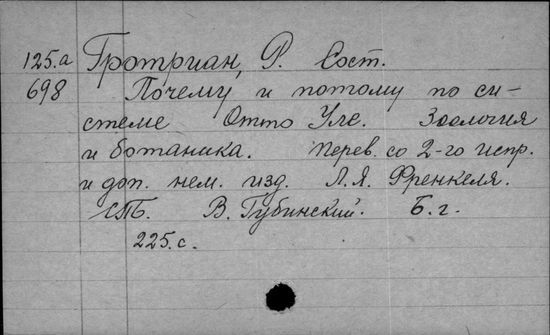 125.а Гротриан, Р. Сост.
698 Почему и потому по си-
стеме Отто Уле. Зоология
и ботаника. Перев. со 2-го испр.
и доп. нем. изд. Л.Я. Френкеля.
СПБ. В. Губинский. Б.г.
225.с.